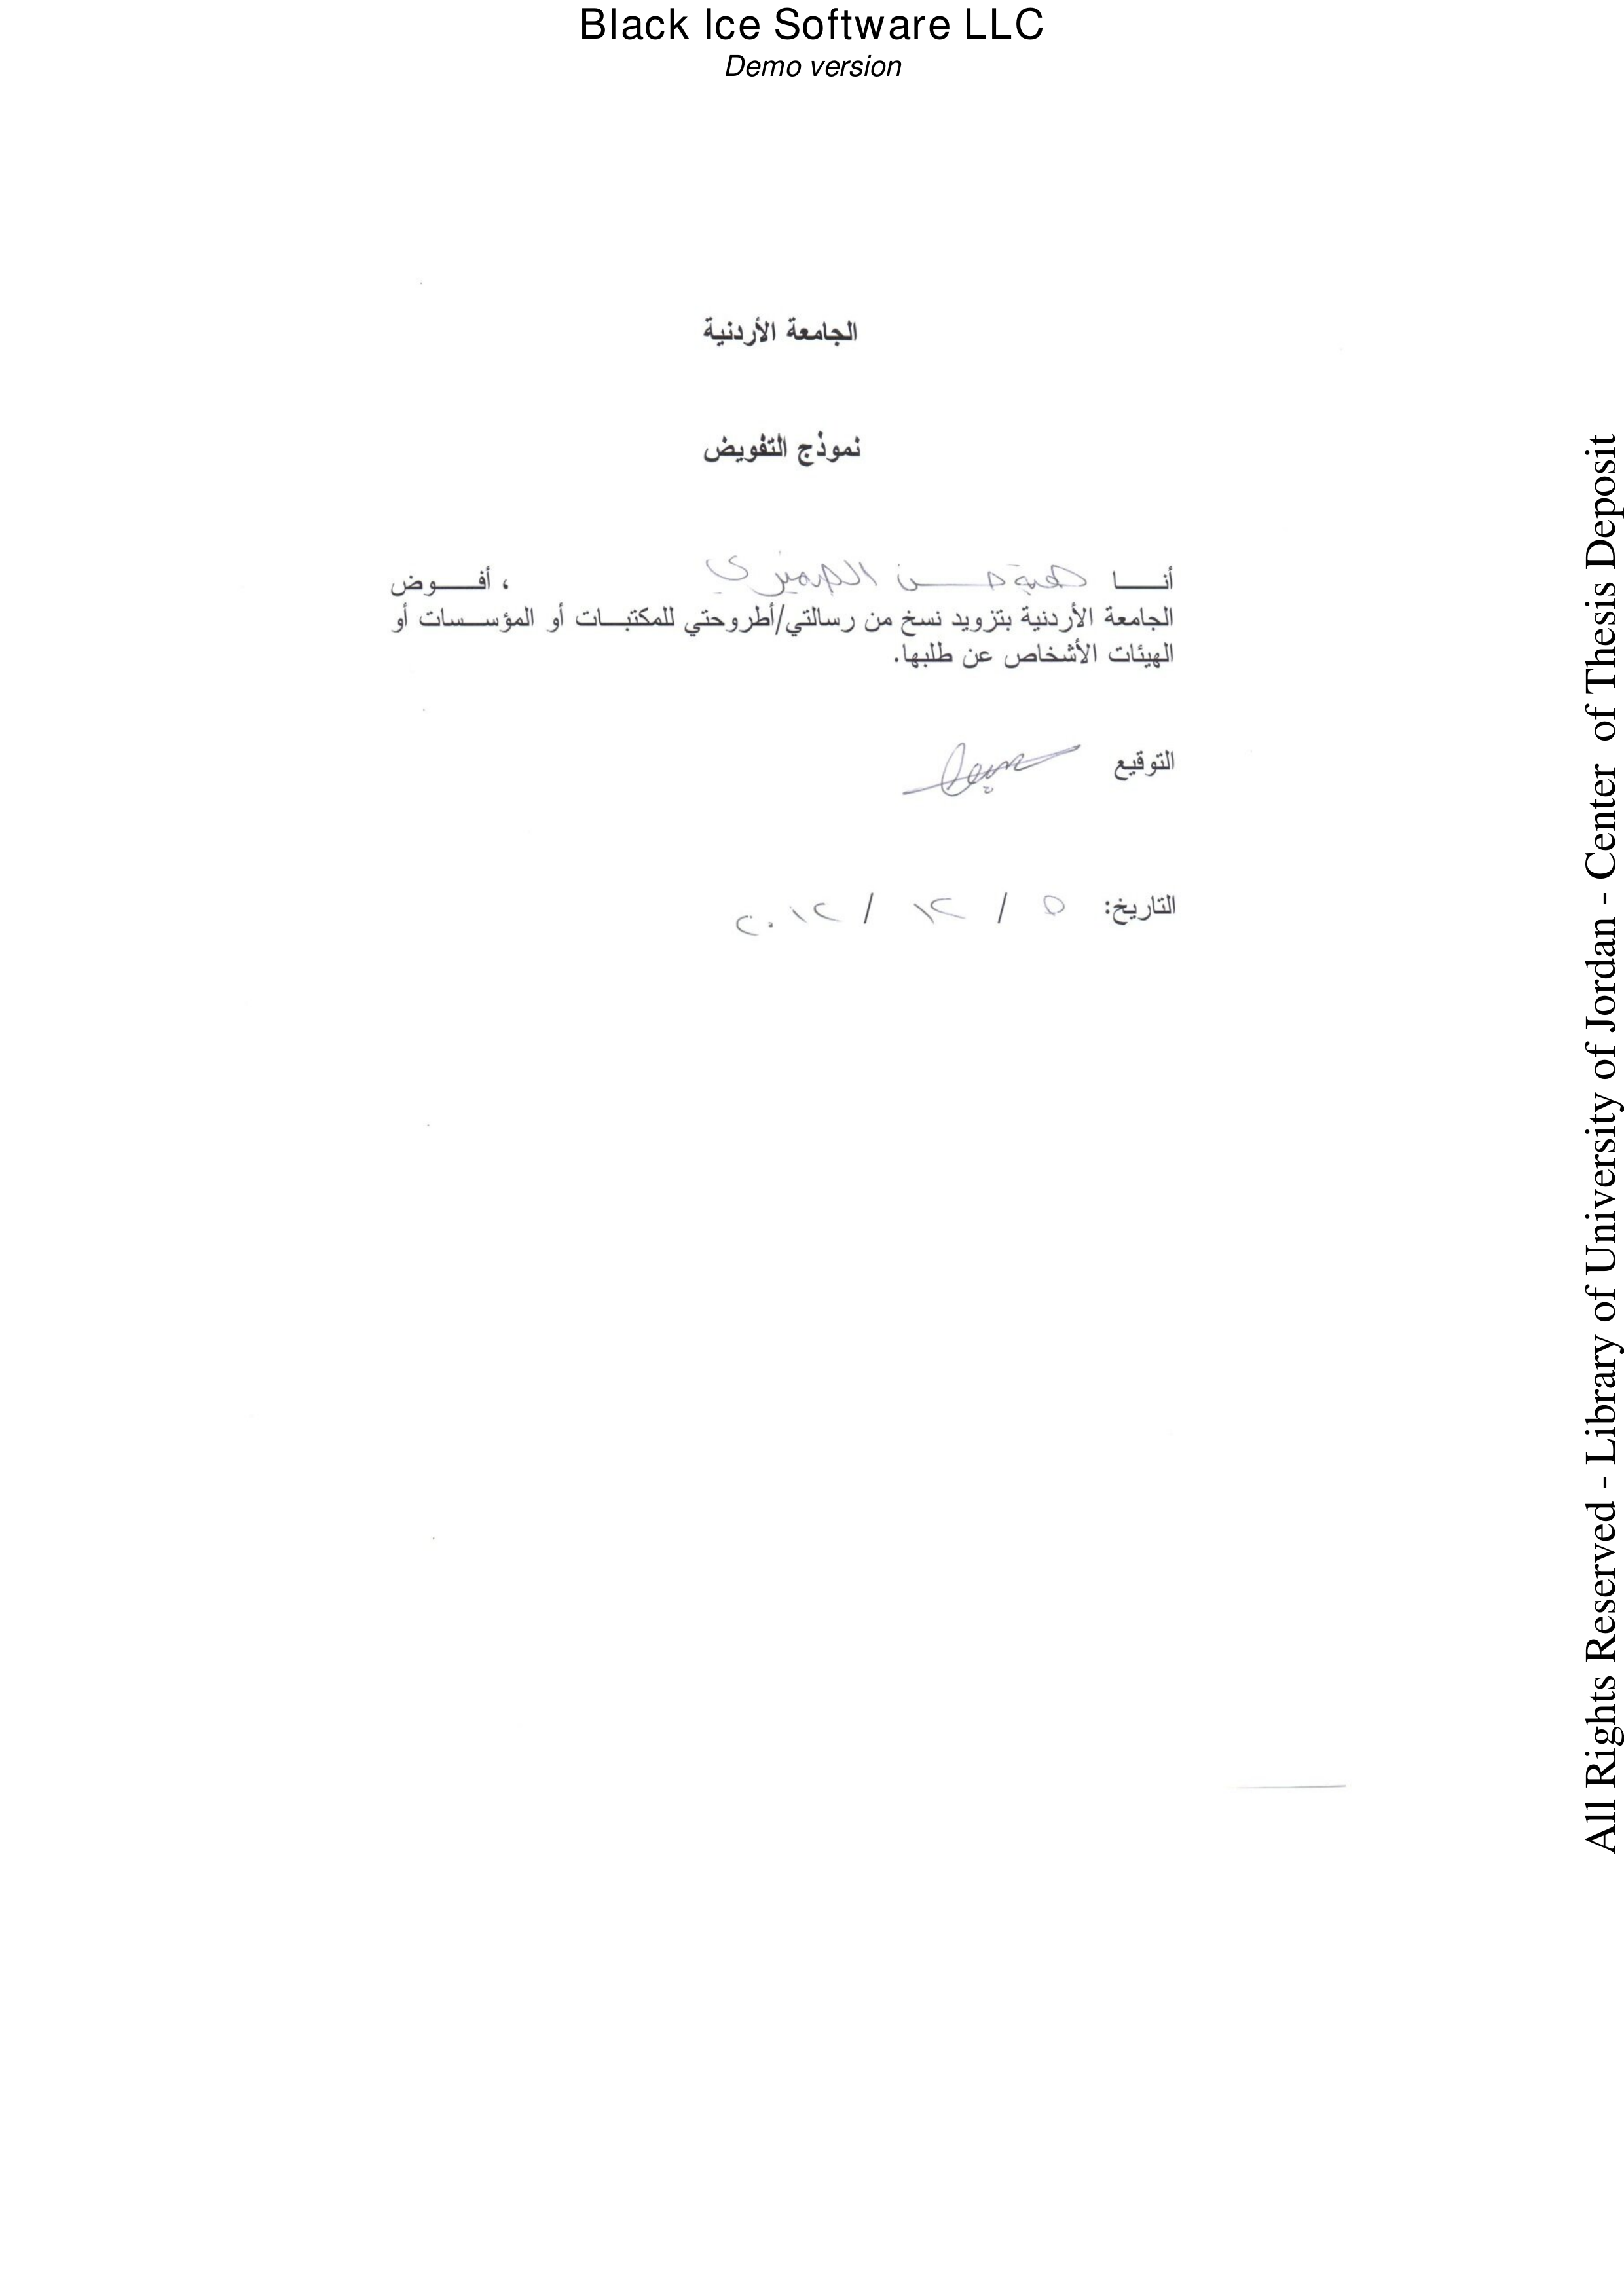 Black Ice Software LLC
Demo version
الجامعة الأردنية
نموذج التفويض
أنـــا هبة حسن ، أفـــوض
الجامعة الأردنية بتزويد نسخ من رسالتي/أطروحتي للمكتبـات أو المؤسـسات أو
الهيئات الأشخاص عن طلبها.
التوقيع
التاريخ: ٥ / ١٢ / ٢٠١٢
All Rights Reserved - Library of University of Jordan - Center of Thesis Deposit